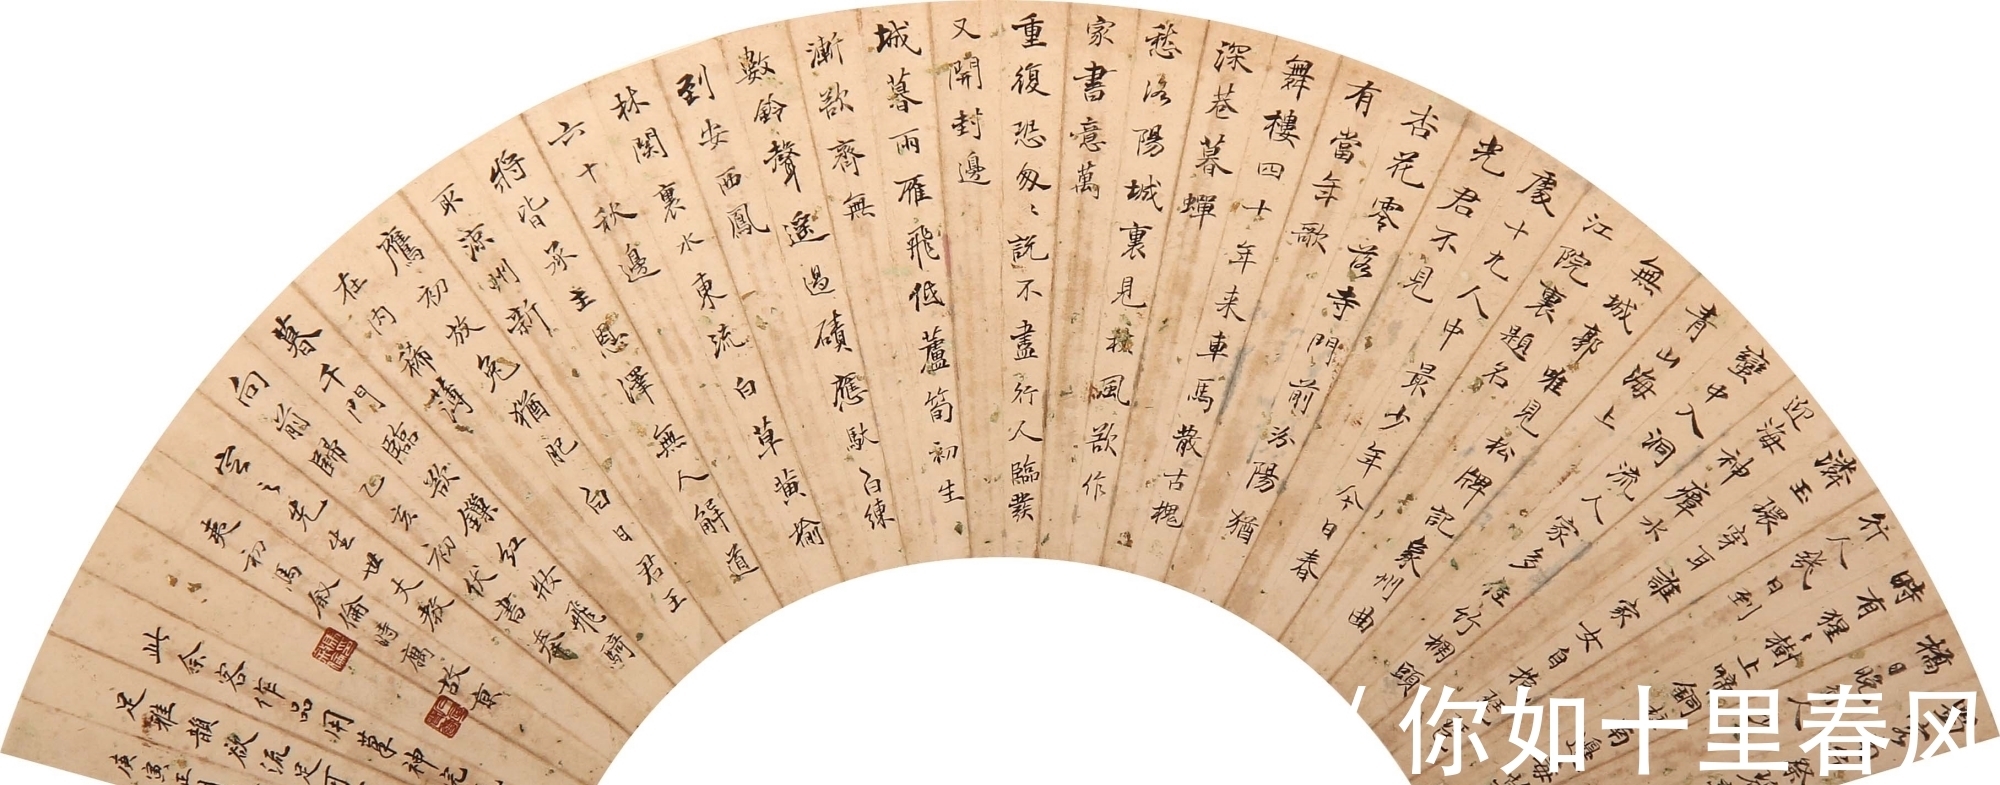 時有猩〻樹上啼
行人幾日到
濟玉環穿耳誰家女自抱琵
迎海神瘴水
蠻中入洞流人家多住竹棚頭
青山海上
無城郭唯見松牌記象州曲
江院裏題名
處十九人中最少年今日春
光君不見
杏花零落寺門前汾陽猶
有當年歌
舞樓四十年来車馬散古槐
深巷暮蟬
愁洛陽城裏見秋風欲作
家書意萬
重復恐匆〻說不盡行人臨發
又開封邊
城暮雨雁飛低蘆筍初生
漸欲齊無
數鈴聲遙過磧應馱白練
到安西鳳
林関裏水東流白草黃榆
六十秋邊
將皆承主恩澤無人解道
取涼州新
鷹初放兔猶肥白日君王
在內稀薄
暮千門臨欲鎖紅妝飛騎
向前歸 乙亥初伏書奉
玄之先生世丈教 時寓故京
夷初馬叙倫
此余客作品用筆神完
足雅韻欲流足可
庚寅正月
你如十里春风